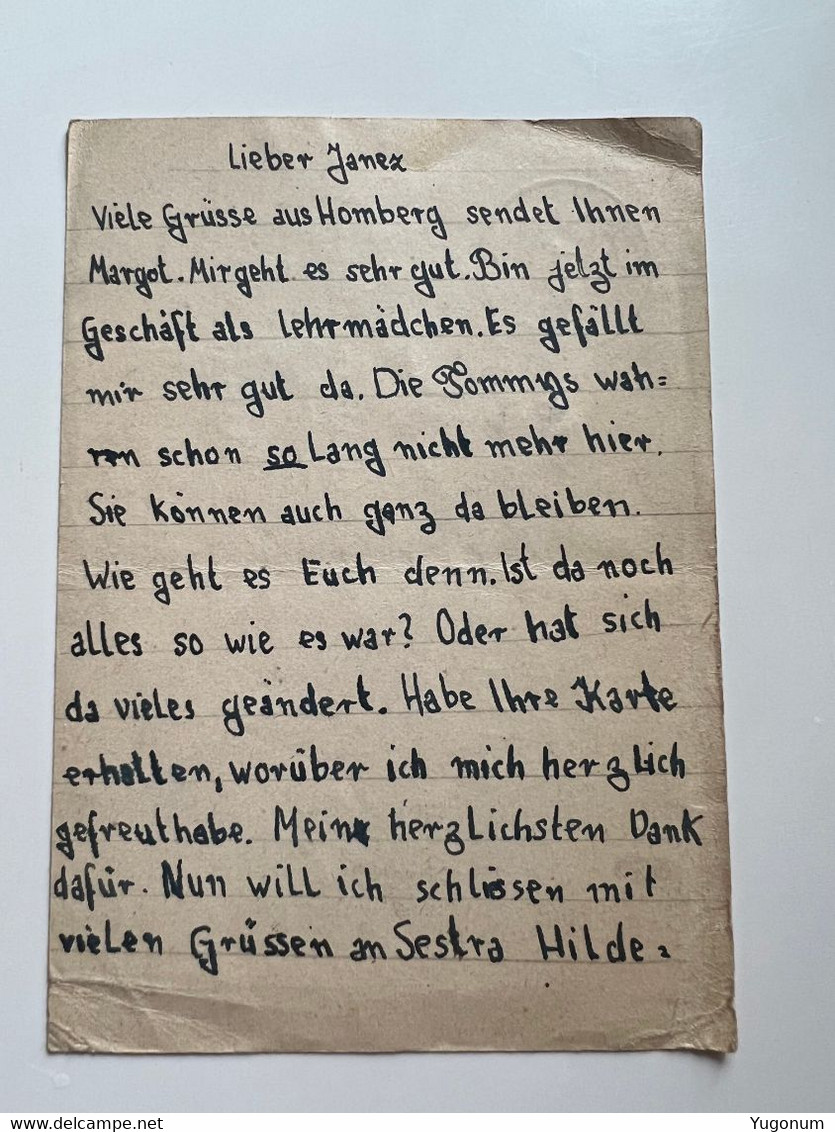 Lieber Janez
Viele Grüsse aus Homberg sendet Ihnen
Margot. Mir geht es sehr gut. Bin jetzt im
Geschäft als Lehrmädchen. Es gefällt
mir sehr gut da. Die Tommys wah=
ren schon so Lang nicht mehr hier.
Sie können auch ganz da bleiben.
Wie geht es Euch denn. Ist da noch
alles so wie es war? Oder hat sich
da vieles geändert. Habe Ihre Karte
erhalten, worüber ich mich herzlich
gefreut habe. Mein herzlichsten Dank
dafür. Nun will ich schliessen mit
vielen Grüssen an Sestra Hilde.
delcampe.net
Yugonum